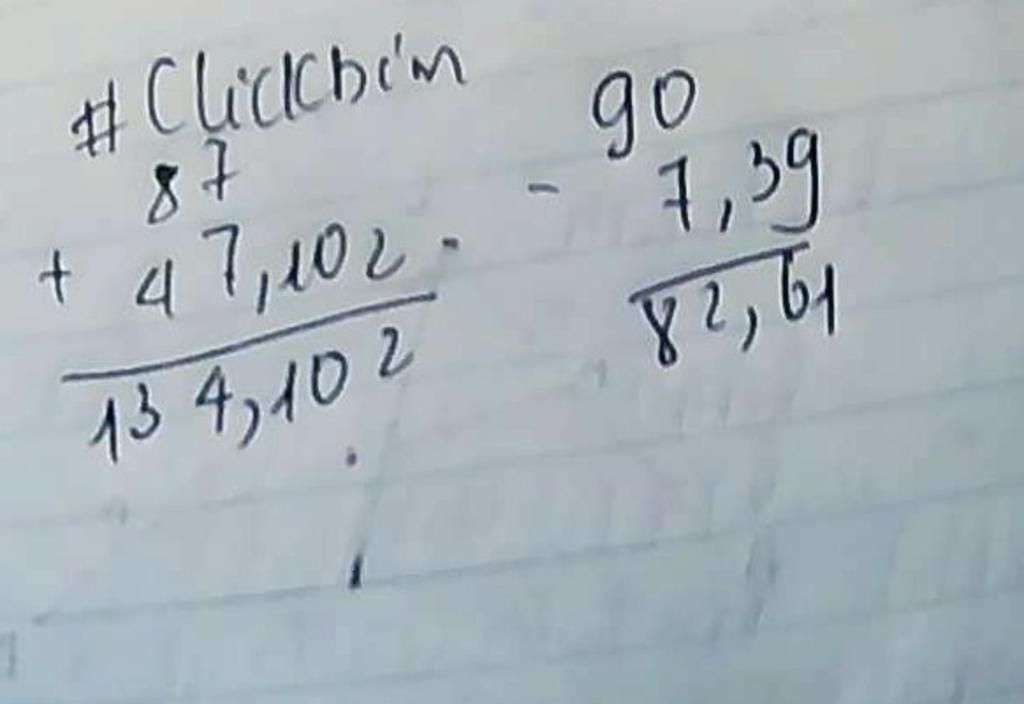 #Clickbim
87
+ 47,102
134,102
90
- 7,39
82,61